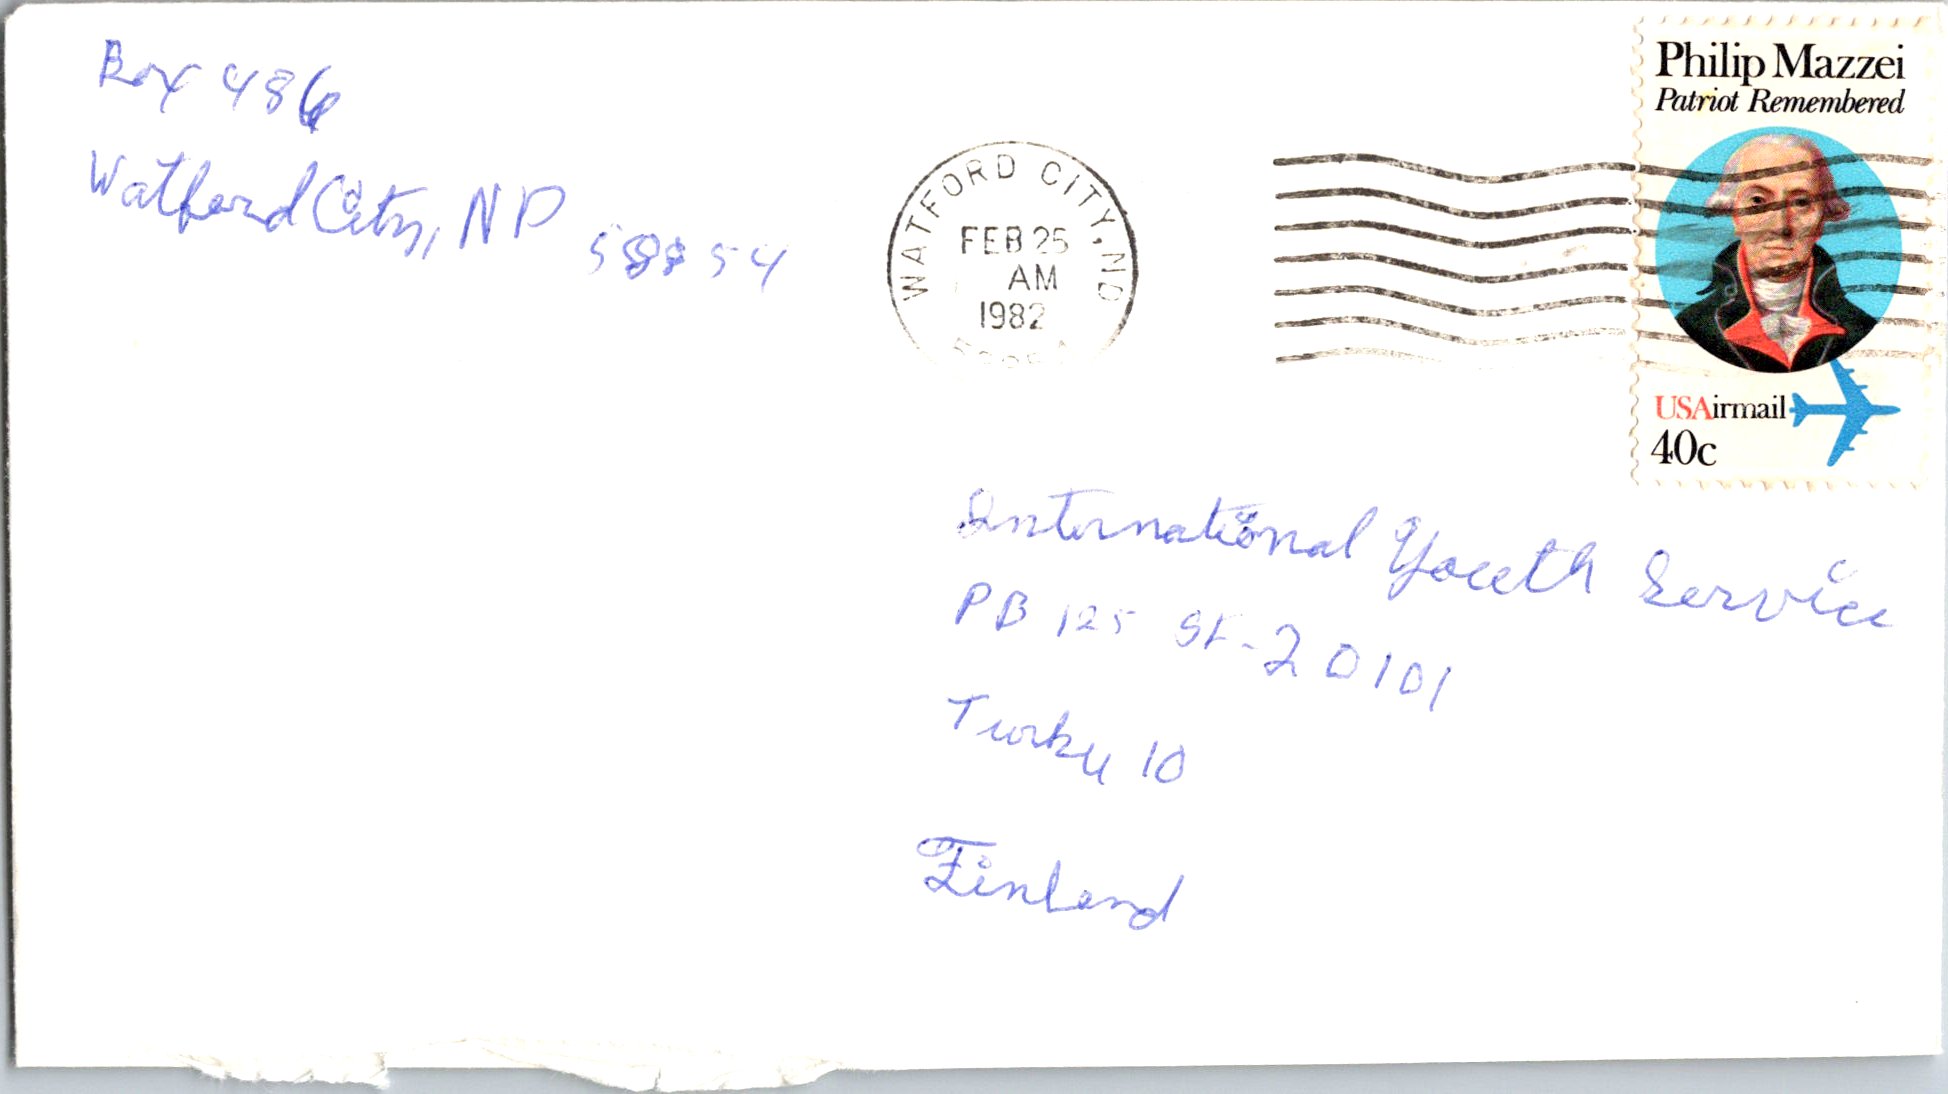 Box 486
Watford City, ND 58854
WATFORD CITY, ND
FEB 25
AM
1982
Philip Mazzei
Patriot Remembered
USAirmail
40c
International Youth Service
PB 125 SF-20101
Turku 10
Finland